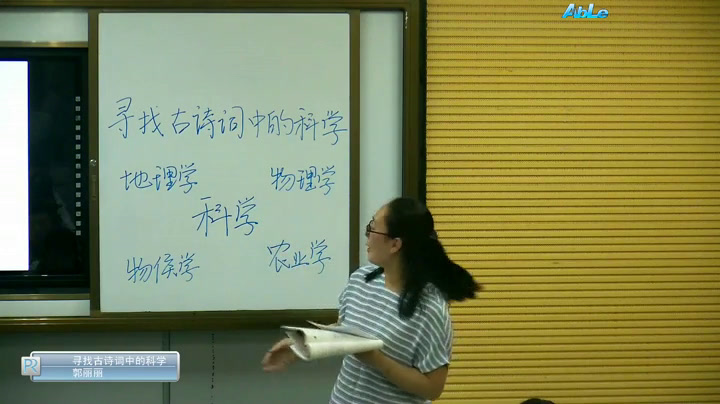 AbLe
寻找古诗词中的科学
地理学 物理学
科学
物候学 农业学
寻找古诗词中的科学
郭丽丽